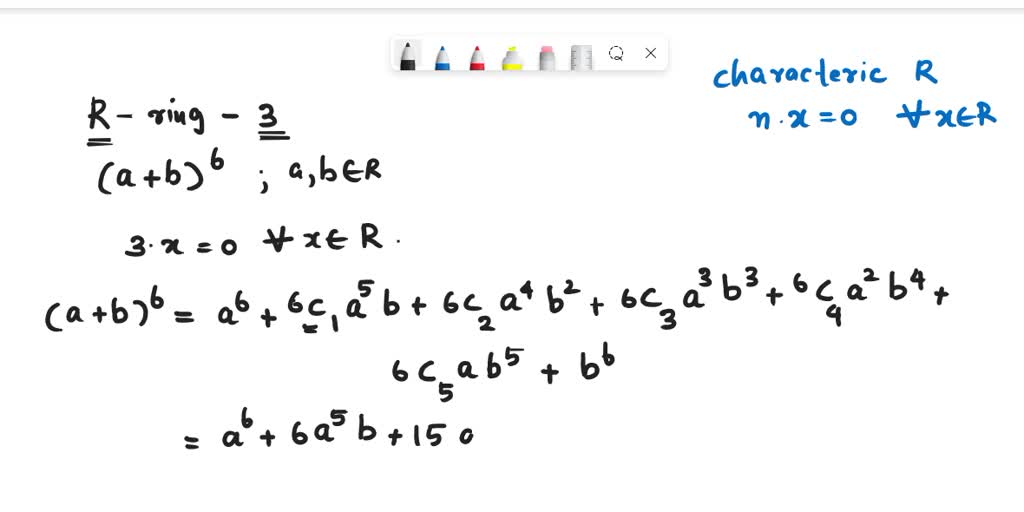 characteric R
n·x=0 ∀x∈R
R - ring - 3
(a+b)⁶ ; a,b∈R
3·x=0 ∀x∈R.
(a+b)⁶ = a⁶ + 6c₁a⁵b + 6c₂a⁴b² + 6c₃a³b³ + ⁶c₄a²b⁴ +
6c₅ab⁵ + b⁶
= a⁶ + 6a⁵b + 15 a